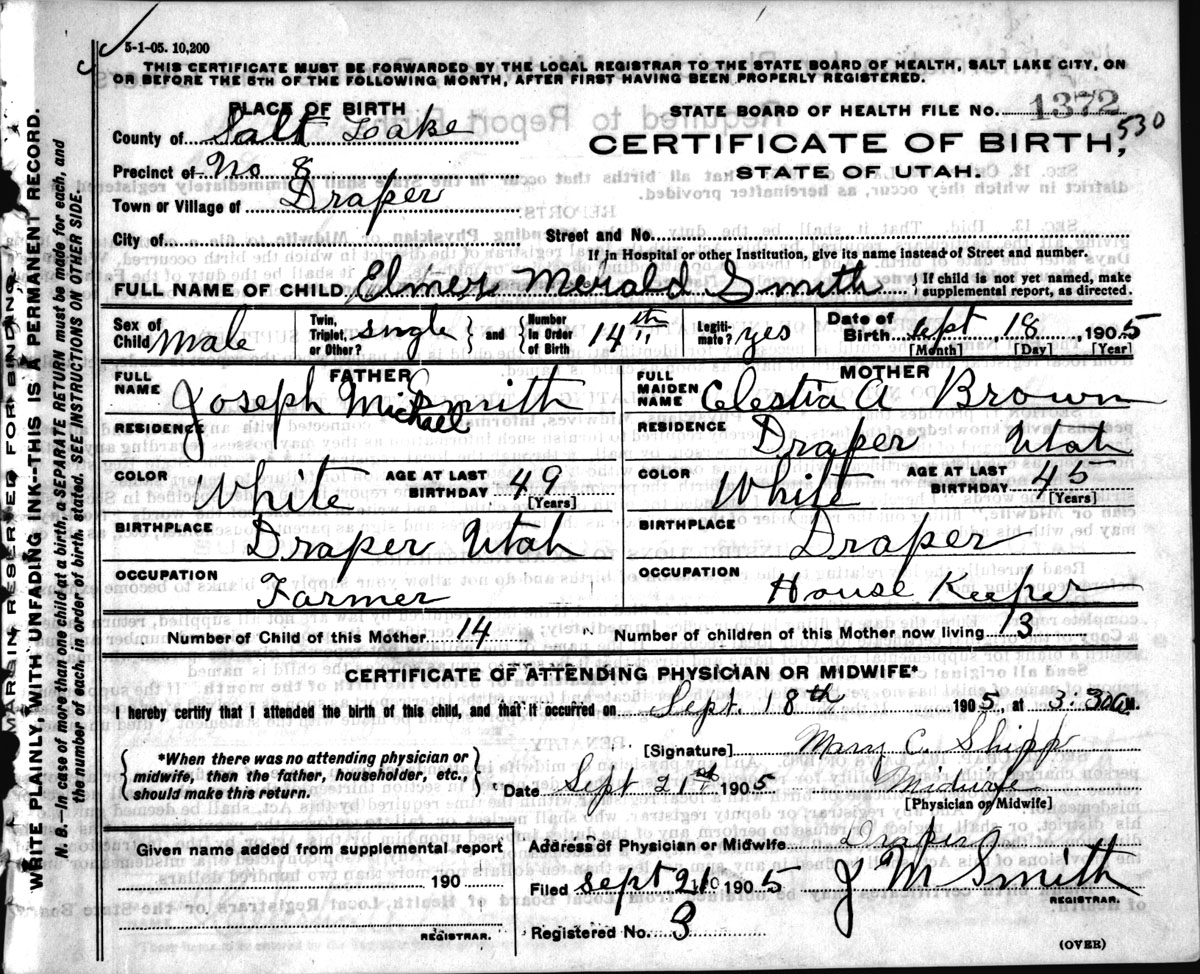 5-1-05. 10,200
THIS CERTIFICATE MUST BE FORWARDED BY THE LOCAL REGISTRAR TO THE STATE BOARD OF HEALTH, SALT LAKE CITY, ON
OR BEFORE THE 5TH OF THE FOLLOWING MONTH, AFTER FIRST HAVING BEEN PROPERLY REGISTERED.
MARGIN RESERVED FOR BINDING.
WRITE PLAINLY, WITH UNFADING INK--THIS IS A PERMANENT RECORD.
N. B.—In case of more than one child at a birth, a SEPARATE RETURN must be made for each, and
the number of each, in order of birth, stated. SEE INSTRUCTIONS ON OTHER SIDE.
PLACE OF BIRTH
County of Salt Lake
Precinct of No 8
Town or Village of Draper
STATE BOARD OF HEALTH FILE No. 1372
530
CERTIFICATE OF BIRTH,
STATE OF UTAH.
City of Street and No.
If in Hospital or other Institution, give its name instead of Street and number.
FULL NAME OF CHILD Elmer Merald Smith { If child is not yet named, make
supplemental report, as directed.
Sex of Child Male
Twin, Triplet, or Other? single } and { Number in Order of Birth 14th
Legitimate? yes
Date of Birth Sept 18 1905
[Month] [Day] [Year]
FATHER
FULL NAME Joseph Michael Smith
RESIDENCE
COLOR White AGE AT LAST BIRTHDAY 49 [Years]
BIRTHPLACE Draper Utah
OCCUPATION Farmer
MOTHER
FULL MAIDEN NAME Celestia A Brown
RESIDENCE Draper Utah
COLOR White AGE AT LAST BIRTHDAY 45 [Years]
BIRTHPLACE Draper
OCCUPATION House Keeper
Number of Child of this Mother 14 Number of children of this Mother now living 13
CERTIFICATE OF ATTENDING PHYSICIAN OR MIDWIFE*
I hereby certify that I attended the birth of this child, and that it occurred on Sept. 18th 1905, at 3:30 a M.
{ *When there was no attending physician or
midwife, then the father, householder, etc.,
should make this return. }
[Signature] Mary C. Shipp
Date Sept 21st 1905 Midwife
[Physician or Midwife]
Given name added from supplemental report
190
REGISTRAR.
Address of Physician or Midwife Draper
Filed Sept 21 1905 J M Smith
REGISTRAR.
Registered No. 3
(OVER)